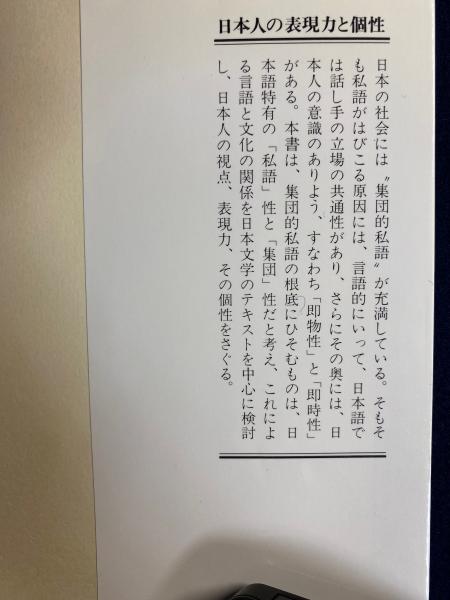 日本人の表現力と個性
日本の社会には〝集団的私語〟が充満している。そもそ
も私語がはびこる原因には、言語的にいって、日本語で
は話し手の立場の共通性があり、さらにその奥には、日
本人の意識のありよう、すなわち「即物性」と「即時性」
がある。本書は、集団的私語の根底にひそむものは、日
本語特有の「私語」性と「集団」性だと考え、これによ
る言語と文化の関係を日本文学のテキストを中心に検討
し、日本人の視点、表現力、その個性をさぐる。